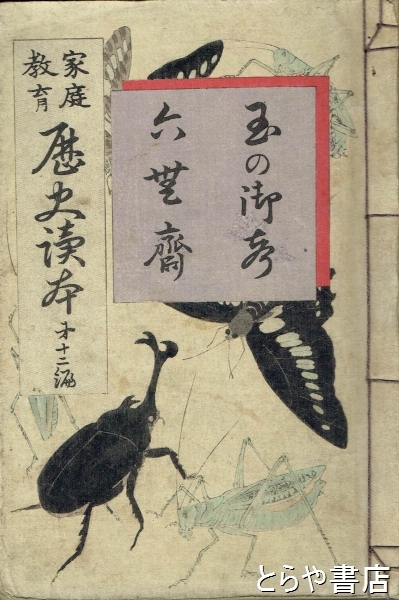 家庭
教育
歴史讀本
第十二編
玉の御声
六無齋
とらや書店